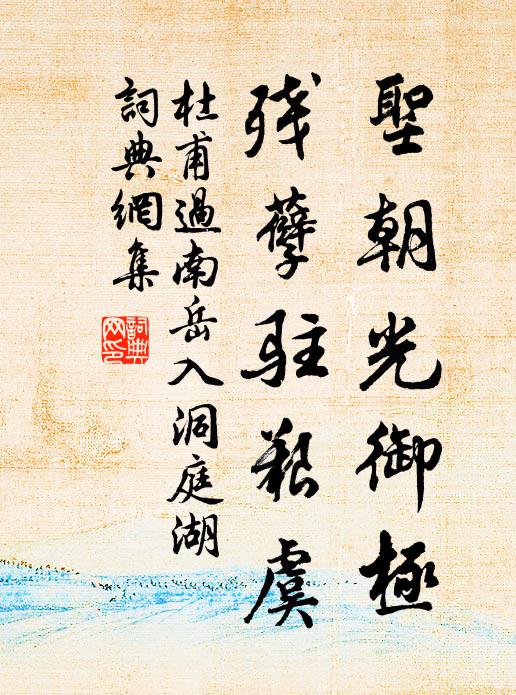 聖朝光御極
残孽駐艱虞
杜甫過南岳入洞庭湖
詞典網集
詞典网印